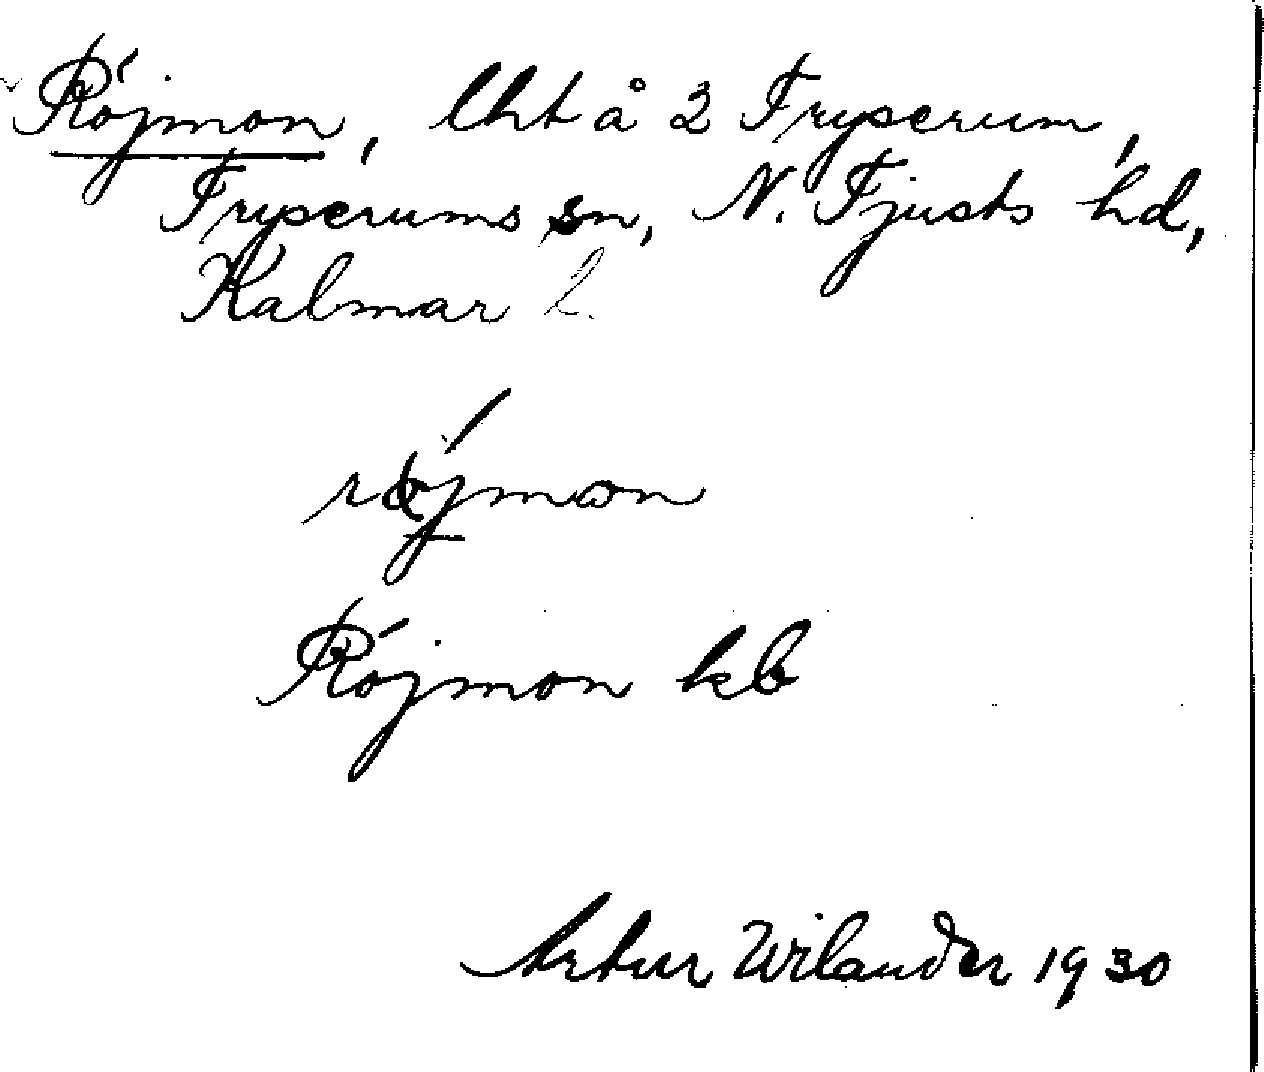 Röjmon, lht å 2 Fryserum,
Fryserums sn, N. Tjusts hd,
Kalmar l.
röjmon
Röjmon kb
Artur Wilander 1930